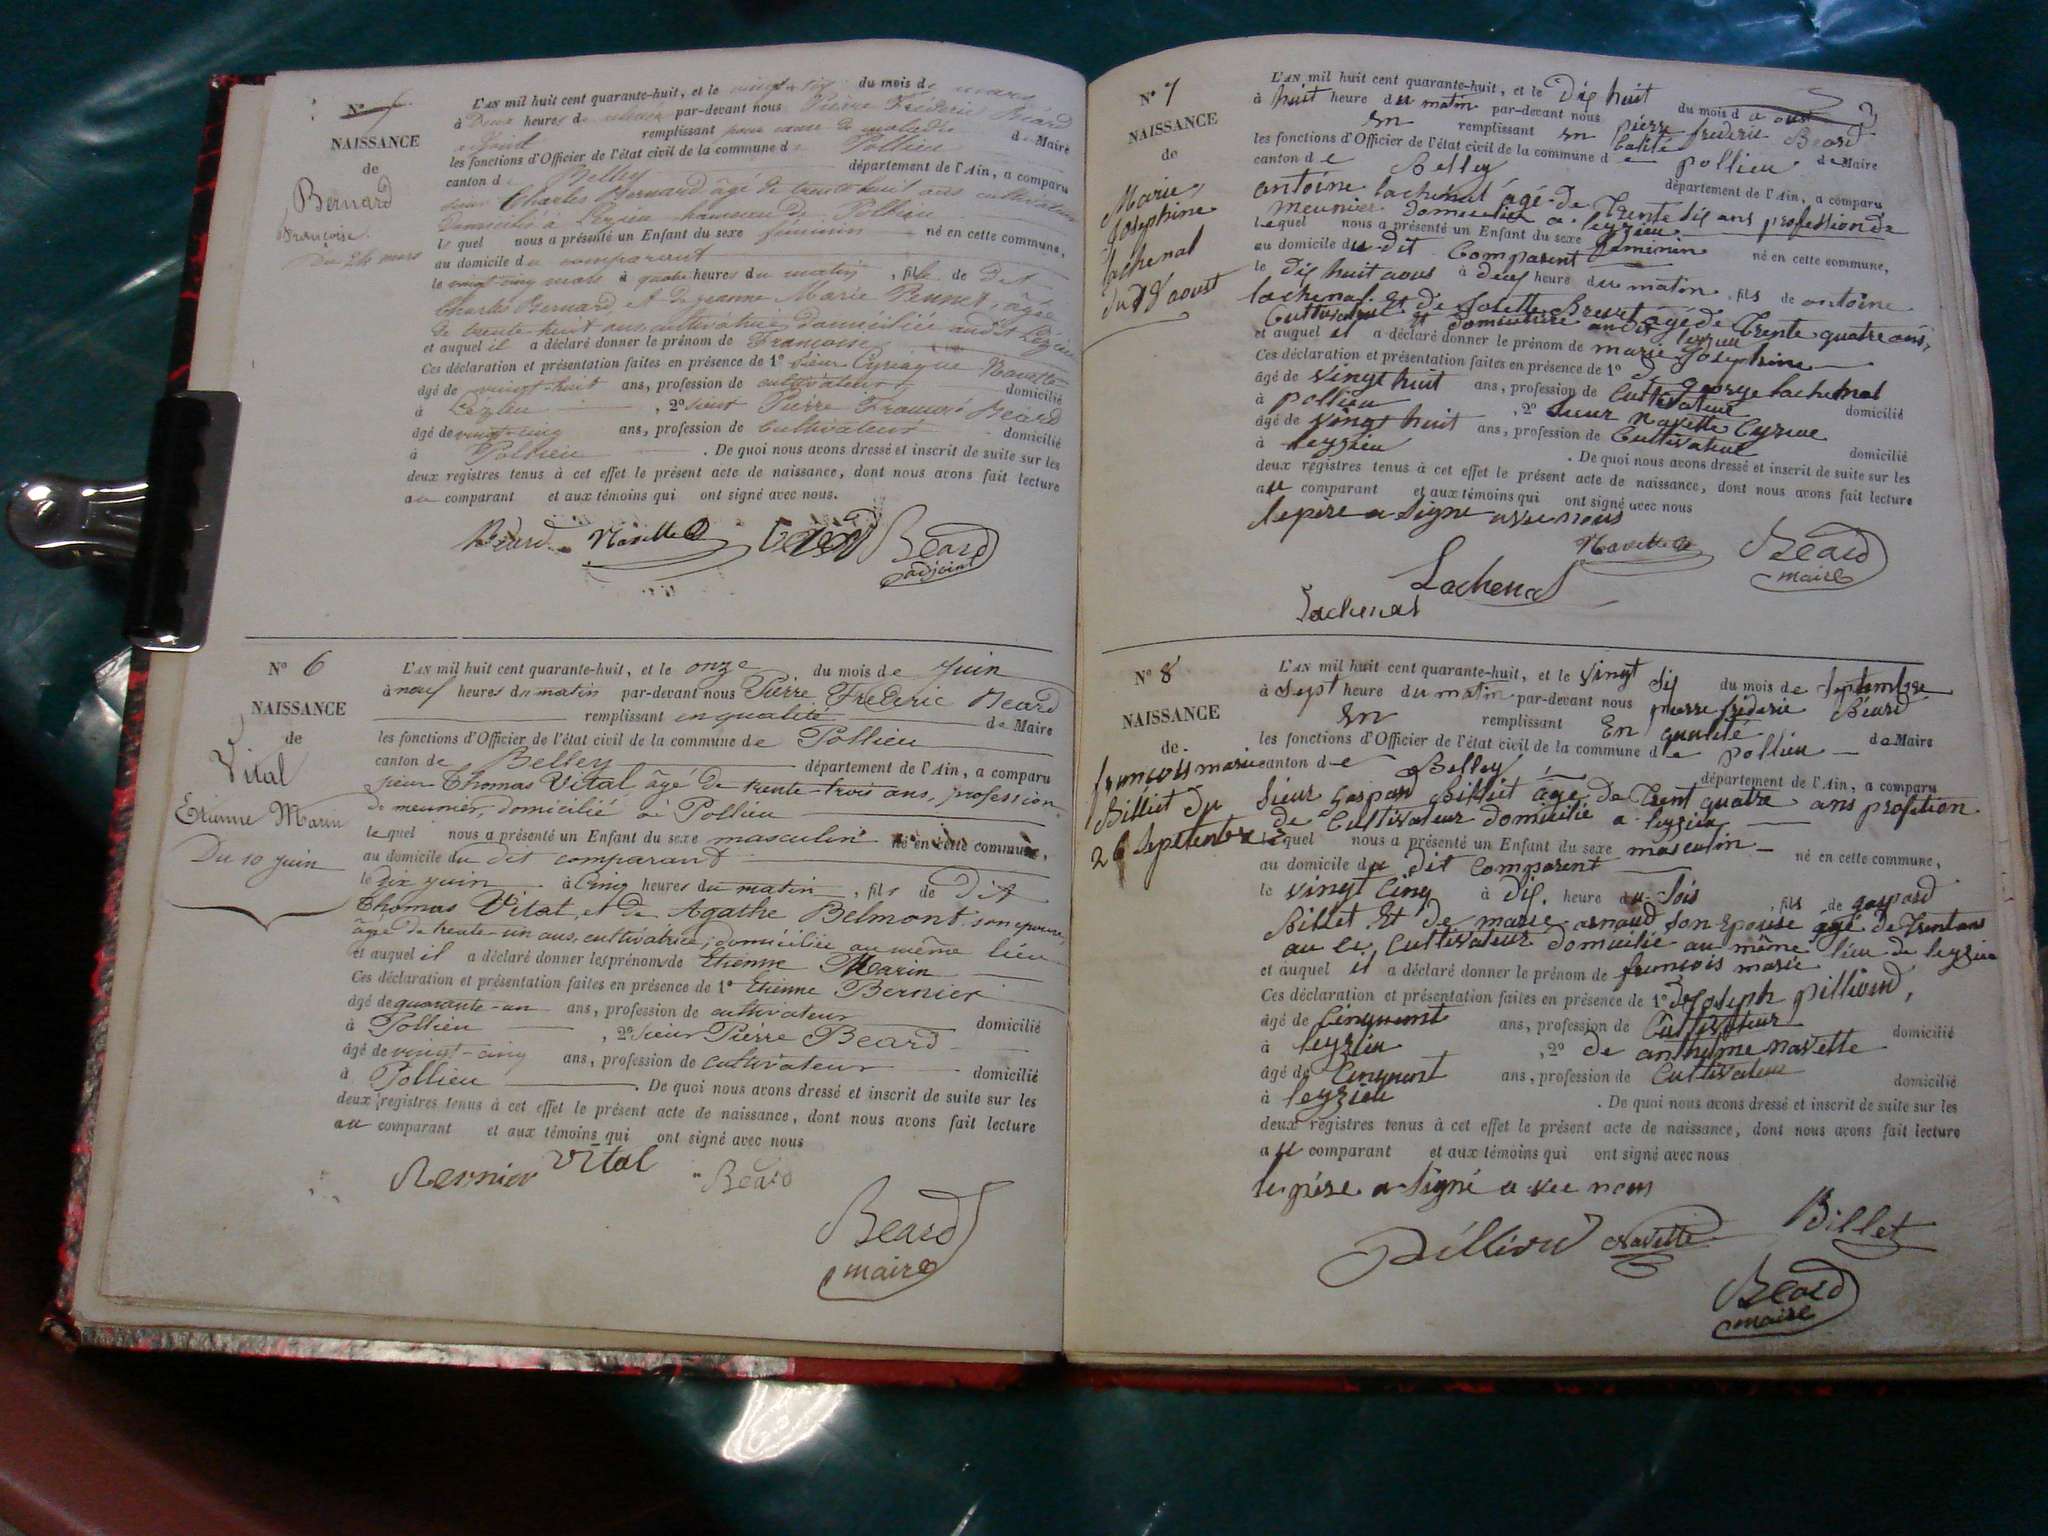 N° 5
NAISSANCE
de
Bernard
Françoise
Du 24 mars
L'AN mil huit cent quarante-huit, et le vingt-six du mois de mars
à Deux heures de par-devant nous Pierre Fréderic Béard
adjoint remplissant pour cause de maladie de Maire
les fonctions d'Officier de l'état civil de la commune de Pollieu
canton de Belley département de l'Ain, a comparu
sieur Charles Bernard âgé de trente huit ans cultivateur
domicilié à Leyzieu hameau de Pollieu
le quel nous a présenté un Enfant du sexe féminin né en cette commune,
au domicile du comparant
le vingt cinq mars à quatre heures du matin, fille de Dit
Charles Bernard et de jeanne Marie Pennet, âgée
de trente huit ans cultivatrice domiciliée audit Leyzieu
et auquel il a déclaré donner le prénom de Françoise
Ces déclaration et présentation faites en présence de 1° sieur Cyriaque Navette
âgé de vingt-huit ans, profession de cultivateur domicilié
à Leyzieu, 2° sieur Pierre François Béard
âgé de vingt-cinq ans, profession de cultivateur domicilié
à Pollieu. De quoi nous avons dressé et inscrit de suite sur les
deux registres tenus à cet effet le présent acte de naissance, dont nous avons fait lecture
au comparant et aux témoins qui ont signé avec nous.
Béard Navette Béard
adjoint
N° 6
NAISSANCE
de
Vital
Etienne Marin
Du 10 juin
L'AN mil huit cent quarante-huit, et le onze du mois de juin
à neuf heures du matin par-devant nous Pierre Fréderic Béard
remplissant en qualité de Maire
les fonctions d'Officier de l'état civil de la commune de Pollieu
canton de Belley département de l'Ain, a comparu
sieur Thomas Vital âgé de trente-trois ans, profession
de meunier, domicilié à Pollieu
le quel nous a présenté un Enfant du sexe masculin né en cette commune,
au domicile du dit comparant
le dix juin à cinq heures du matin, fils de Dit
Thomas Vital et de Agathe Belmont son epouse,
âgée de trente-un ans, cultivatrice, domiciliée au même lieu
et auquel il a déclaré donner les prénoms de Etienne Marin
Ces déclaration et présentation faites en présence de 1° Etienne Bernier
âgé de quarante-un ans, profession de cultivateur domicilié
à Pollieu, 2° sieur Pierre Béard
âgé de vingt-cinq ans, profession de cultivateur domicilié
à Pollieu. De quoi nous avons dressé et inscrit de suite sur les
deux registres tenus à cet effet le présent acte de naissance, dont nous avons fait lecture
au comparant et aux témoins qui ont signé avec nous
Bernier Vital Béard
Beard
maire
N° 7
NAISSANCE
de
Marie
Josephine
lachenal
du 18 aoust
L'AN mil huit cent quarante-huit, et le Dix huit du mois d aoust
à huit heure du matin par-devant nous pierre frederic Beard
En remplissant En Calité de Maire
les fonctions d'Officier de l'état civil de la commune de pollieu
canton de Belley département de l'Ain, a comparu
antoine lachenal âgé de Trente six ans profession de
meunier domicilier a leyzieu
lequel nous a présenté un Enfant du sexe feminin né en cette commune,
au domicile du dit Comparent
le dix huit aous à deux heure du matin, fils de antoine
lachenal. Et de Josette Brevet agé de Trente quatre ans,
Cultivateur Et domiciliere audit leyzieu
et auquel il a déclaré donner le prénom de marie Josephine
Ces déclaration et présentation faites en présence de 1° de george lachenal
âgé de vingt huit ans, profession de Cultivateur domicilié
à pollieu, 2° sieur Navette Cyriue
âgé de vingt huit ans, profession de Cultivateur domicilié
à leyzieu. De quoi nous avons dressé et inscrit de suite sur les
deux registres tenus à cet effet le présent acte de naissance, dont nous avons fait lecture
au comparant et aux témoins qui ont signé avec nous
le père a signe avec nous
Navette Beard
maire
Lachenal
Lachenal
N° 8
NAISSANCE
de
françois marie
Billiet Du
26 septembre
L'AN mil huit cent quarante-huit, et le vingt six du mois de septembre
à sept heure du matin par-devant nous pierre frederic Béard
En remplissant En qualité de Maire
les fonctions d'Officier de l'état civil de la commune de pollieu
canton de Belley département de l'Ain, a comparu
sieur gaspard Billiet âgé de Trent quatre ans profetion
de Cultivateur domicilié a leyzieu
lequel nous a présenté un Enfant du sexe masculin né en cette commune,
au domicile du dit Comparent
le vingt Cinq à dix heure du sois, fils de gaspard
Billet Et de marie arnaud son Epouse agé de Trent ans
au ci Cultivateur domicilié au même lieu de leyzieu
et auquel il a déclaré donner le prénom de françois marie
Ces déclaration et présentation faites en présence de 1° de Joseph pillioud,
âgé de Cinquent ans, profession de Cultivateur domicilié
à leyzieu, 2° de anthyme navette
âgé de Cinquent ans, profession de Cultivateur domicilié
à leyzieu. De quoi nous avons dressé et inscrit de suite sur les
deux registres tenus à cet effet le présent acte de naissance, dont nous avons fait lecture
au comparant et aux témoins qui ont signé avec nous
le père a signé avec nous
Pillioud Navette Billet
Beard
maire